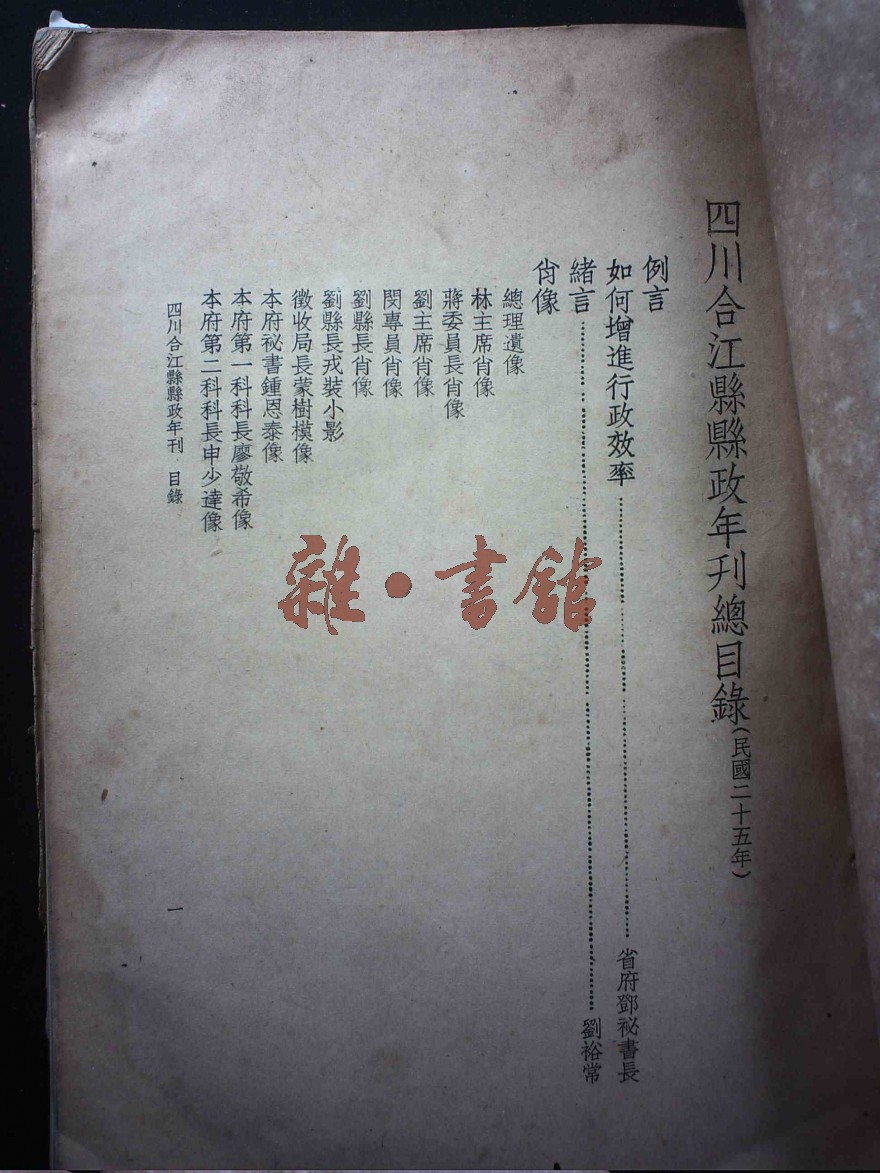 四川合江縣縣政年刊總目錄(民國二十五年)
例言
如何增進行政效率……省府鄧祕書長
緒言……劉裕常
肖像
總理遺像
林主席肖像
蔣委員長肖像
劉主席肖像
閔專員肖像
劉縣長肖像
劉縣長戎裝小影
徵收局長蒙樹模像
本府祕書鍾恩泰像
本府第一科科長廖敬希像
本府第二科科長申少達像
四川合江縣縣政年刊 目錄
一
雜·書館